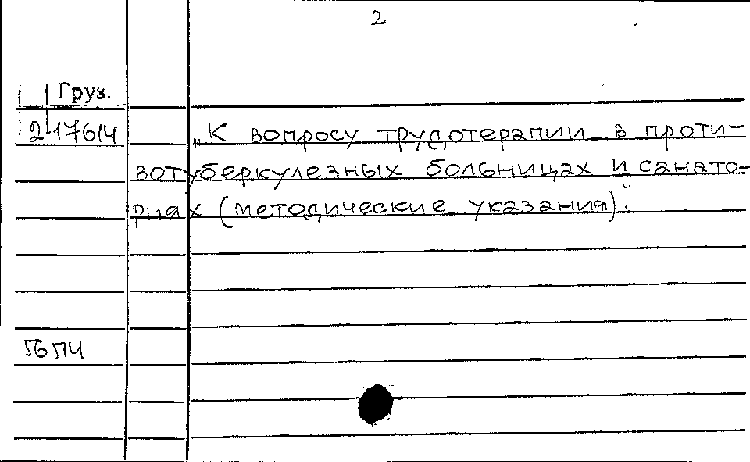 2
Груз.
2-176/4
„К вопросу трудотерапии в проти-
вотуберкулезных больницах и санато-
риях (методические указания)".